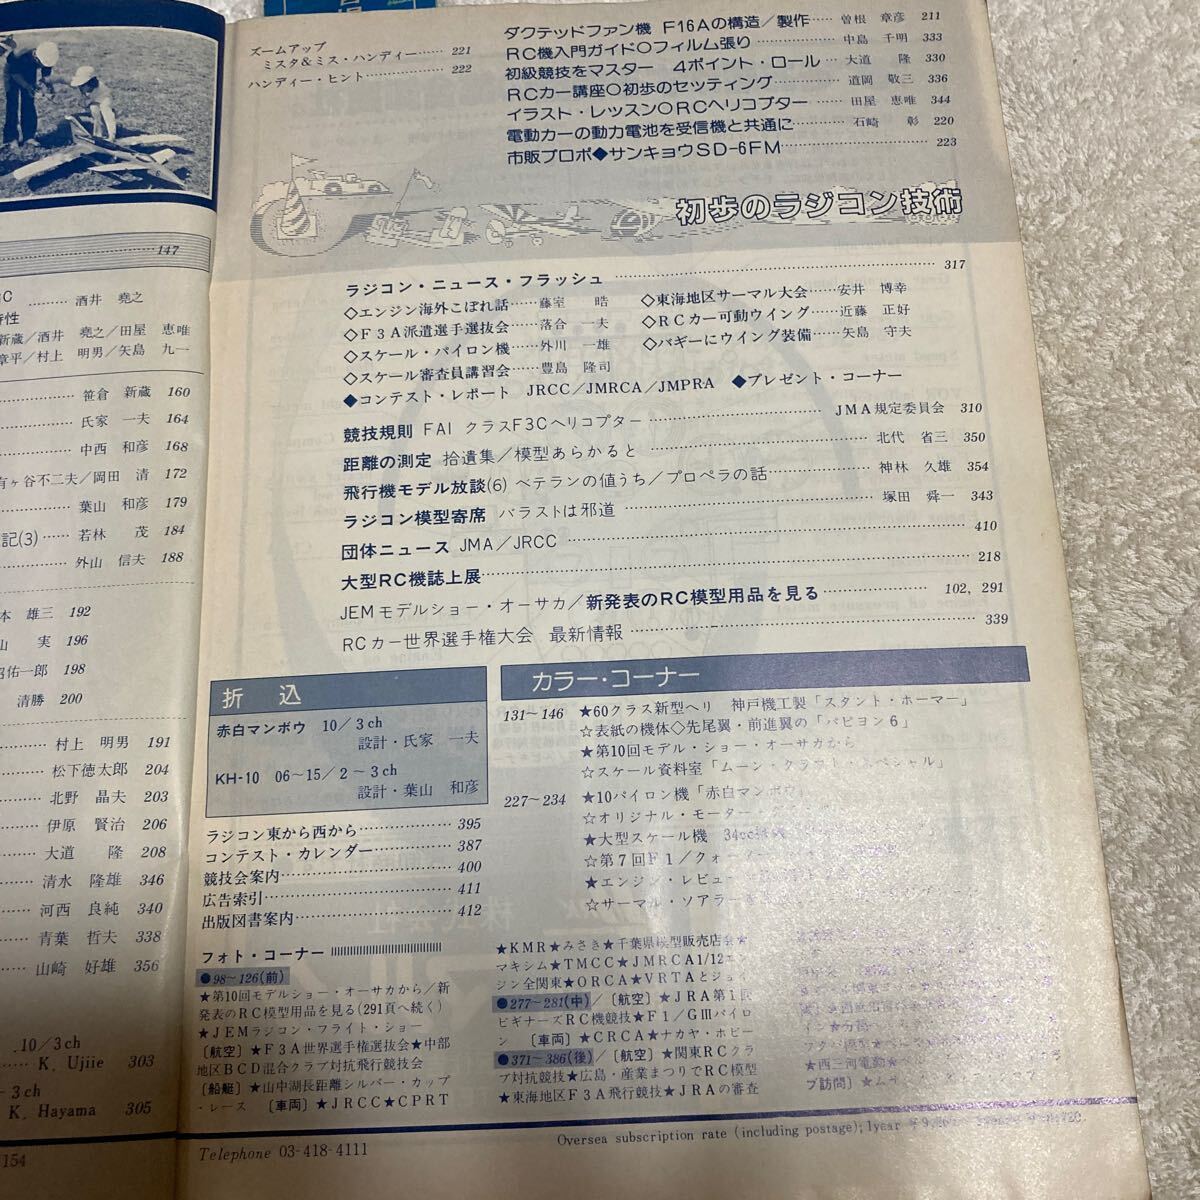 ズームアップ
ミスタ&ミス・ハンディー…… 221
ハンディー・ヒント…………… 222
ダクテッドファン機 F16Aの構造／製作…… 曽根 章彦 211
RC機入門ガイド○フィルム張り………… 中島 千明 333
初級競技をマスター 4ポイント・ロール… 大道 隆 330
RCカー講座○初歩のセッティング……… 道岡 敬三 336
イラスト・レッスン○RCヘリコプター…… 田屋 恵唯 344
電動カーの動力電池を受信機と共通に…… 石崎 彰 220
市販プロポ◆サンキョウSD-6FM………… 223
初歩のラジコン技術
ラジコン・ニュース・フラッシュ………… 317
◇エンジン海外こぼれ話…… 藤室 晧
◇F3A派遣選手選抜会…… 落合 一夫
◇スケール・パイロン機…… 外川 一雄
◇スケール審査員講習会…… 豊島 隆司
◇東海地区サーマル大会…… 安井 博幸
◇RCカー可動ウイング…… 近藤 正好
◇バギーにウイング装備…… 矢島 守夫
◆コンテスト・レポート JRCC／JMRCA／JMPRA ◆プレゼント・コーナー
競技規則 FAI クラスF3Cヘリコプター………… JMA規定委員会 310
距離の測定 拾遺集／模型あらかると………… 北代 省三 350
飛行機モデル放談(6) ベテランの値うち／プロペラの話…… 神林 久雄 354
ラジコン模型寄席 バラストは邪道………… 塚田 舜一 343
団体ニュース JMA／JRCC………… 410
大型RC機誌上展………… 218
JEMモデルショー・オーサカ／新発表のRC模型用品を見る…… 102, 291
RCカー世界選手権大会 最新情報………… 339
折込
赤白マンボウ 10／3ch
設計・氏家 一夫
KH-10 06～15／2～3ch
設計・葉山 和彦
ラジコン東から西から………… 395
コンテスト・カレンダー………… 387
競技会案内………… 400
広告索引………… 411
出版図書案内………… 412
カラー・コーナー
131～146 ★60クラス新型ヘリ 神戸機工製「スタント・ホーマー」
☆表紙の機体◇先尾翼・前進翼の「パピヨン6」
★第10回モデル・ショー・オーサカから
☆スケール資料室「ムーン・クラフト・スペシャル」
227～234 ★10パイロン機「赤白マンボウ」
☆オリジナル・モーター
★大型スケール機 34cc
☆第7回F1／クォー
★エンジン・レビュー
☆サーマル・ソアラー
フォト・コーナー
●98～126(前)
★第10回モデルショー・オーサカから／新
発表のRC模型用品を見る(291頁へ続く)
★JEMラジコン・フライト・ショー
〔航空〕★F3A世界選手権選抜会★中部
地区BCD混合クラブ対抗飛行競技会
〔船艇〕★山中湖長距離シルバー・カップ
・レース 〔車両〕★JRCC★CPRT
★KMR★みさき★千葉県模型販売店会★
マキシム★TMCC★JMRCA1/12エ
ジン全関東★ORCA★VRTAとジョイ
●277～281(中)／〔航空〕★JRA第1回
ビギナーズRC機競技★F1／GⅢパイロ
ン 〔車両〕★CRCA★ナカヤ・ホビー
●371～386(後)／〔航空〕★関東RCクラ
ブ対抗競技★広島・産業まつりでRC模型
★東海地区F3A飛行競技★JRAの審査
★西三河電動★
プ訪問〕
Telephone 03-418-4111
Oversea subscription rate (including postage); 1year
147
酒井 堯之
新蔵／酒井 堯之／田屋 恵唯
章平／村上 明男／矢島 九一
笹倉 新蔵 160
氏家 一夫 164
中西 和彦 168
有ヶ谷不二夫／岡田 清 172
葉山 和彦 179
記(3)…… 若林 茂 184
外山 信夫 188
本 雄三 192
山 実 196
沼佑一郎 198
清勝 200
村上 明男 191
松下徳太郎 204
北野 晶夫 203
伊原 賢治 206
大道 隆 208
清水 隆雄 346
河西 良純 340
青葉 哲夫 338
山崎 好雄 356
10／3ch
K. Ujiie 303
3ch
K. Hayama 305
154